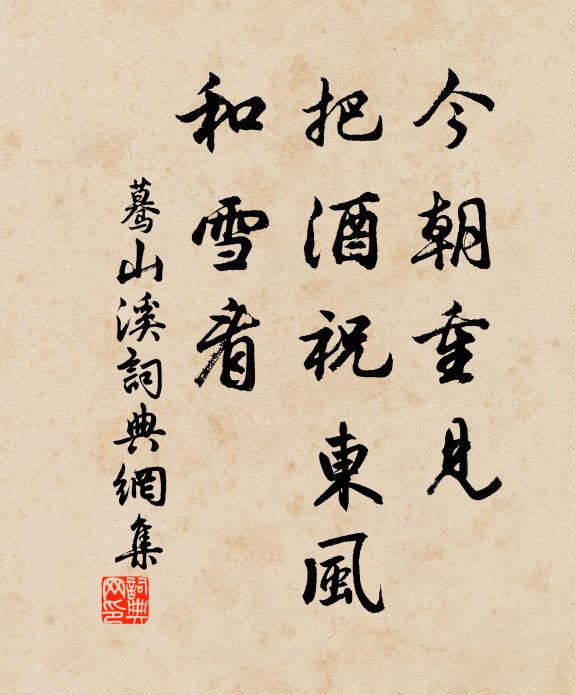 今朝重見
把酒祝東風
和雪看
驀山溪詞典網集
詞典網印